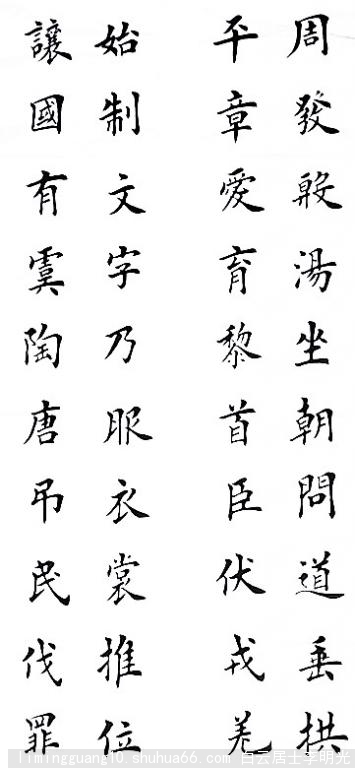 始制文字乃服衣裳推位
讓國有虞陶唐吊民伐罪
周發殷湯坐朝問道垂拱
平章愛育黎首臣伏戎羌
limingguang10.shuhua66.com 白云居士李明光